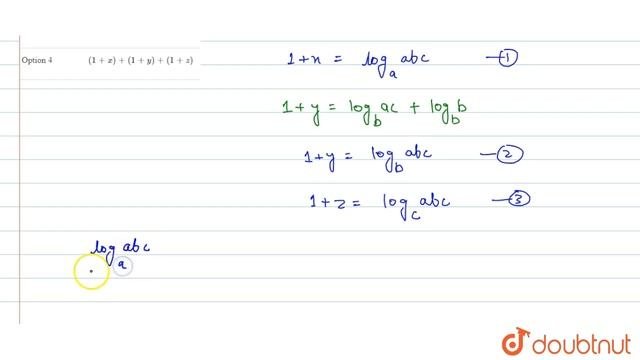 Option 4 (1 + x) + (1 + y) + (1 + z)
1+x = log_a abc —①
1+y = log_b ac + log_b b
1+y = log_b abc —②
1+z = log_c abc —③
log_a abc
doubtnut